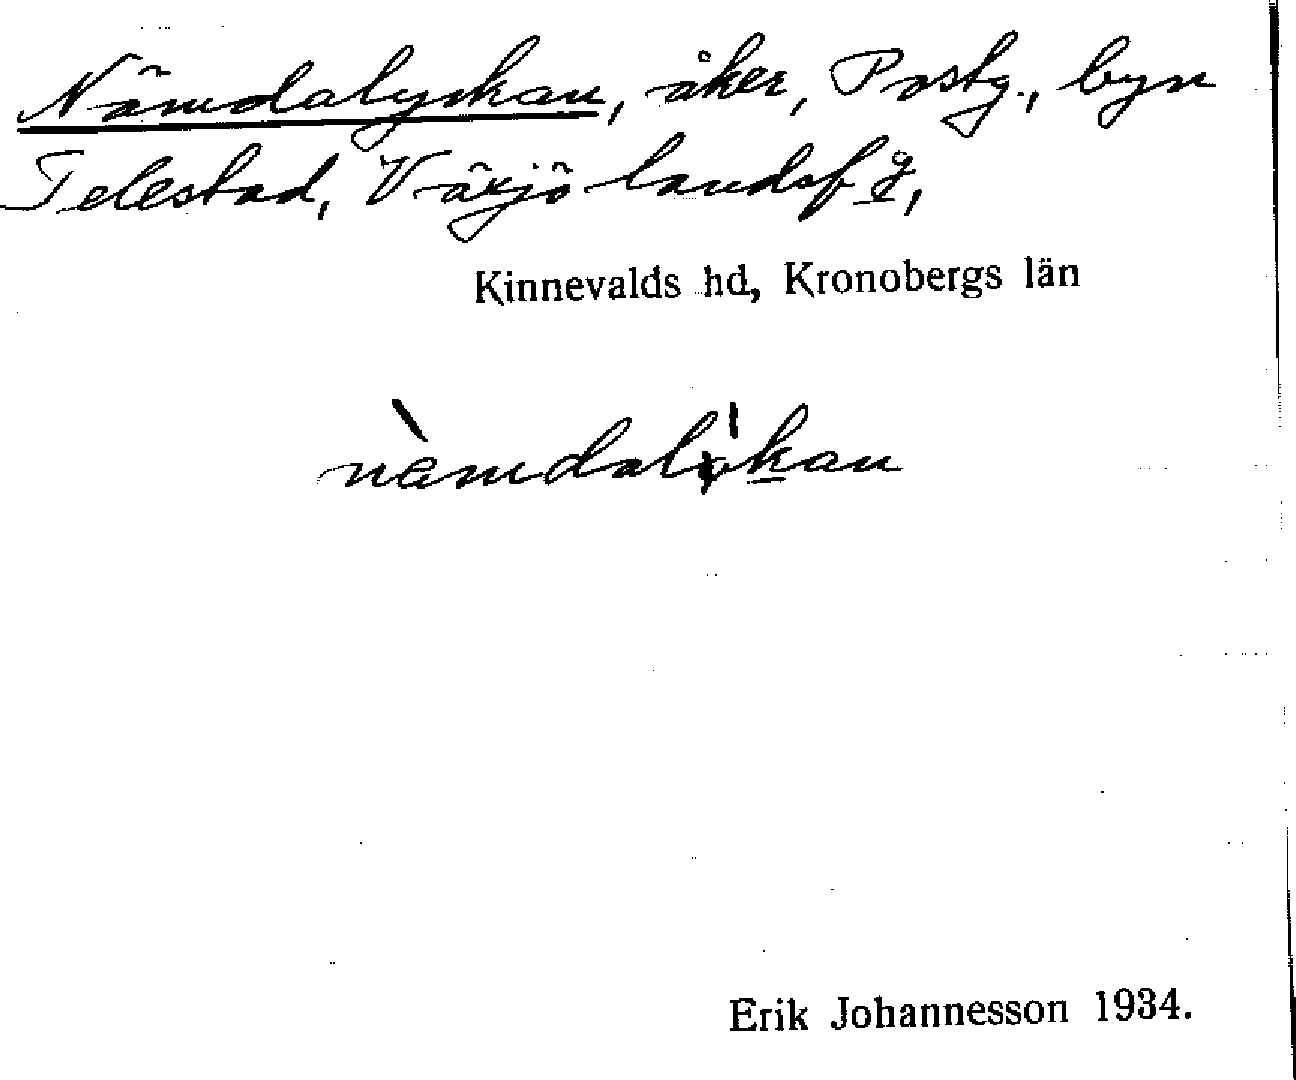 Nämdalyckan, åker, Postg., byn
Telestad, Växjö landsf g,
Kinnevalds hd, Kronobergs län
Erik Johannesson 1934.